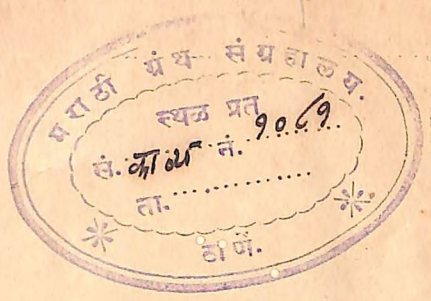 मराठी ग्रंथ संग्रहालय.
स्थळ प्रत
सं. काव्य नं. १०८१
ता. ..............
ठाणें.